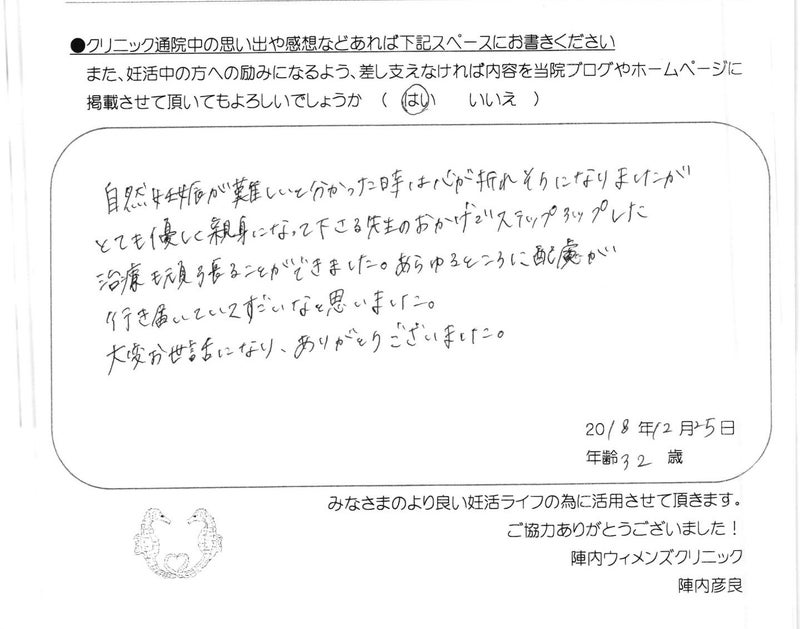 ●クリニック通院中の思い出や感想などあれば下記スペースにお書きください
また、妊活中の方への励みになるよう、差し支えなければ内容を当院ブログやホームページに
掲載させて頂いてもよろしいでしょうか （ はい いいえ ）
自然妊娠が難しいと分かった時は心が折れそうになりましたが
とても優しく親身になって下さる先生のおかげでステップアップした
治療も頑張ることができました。あらゆるところに配慮が
行き届いていてすごいなと思いました。
大変お世話になり、ありがとうございました。
2018年12月25日
年齢32歳
みなさまのより良い妊活ライフの為に活用させて頂きます。
ご協力ありがとうございました！
陣内ウィメンズクリニック
陣内彦良